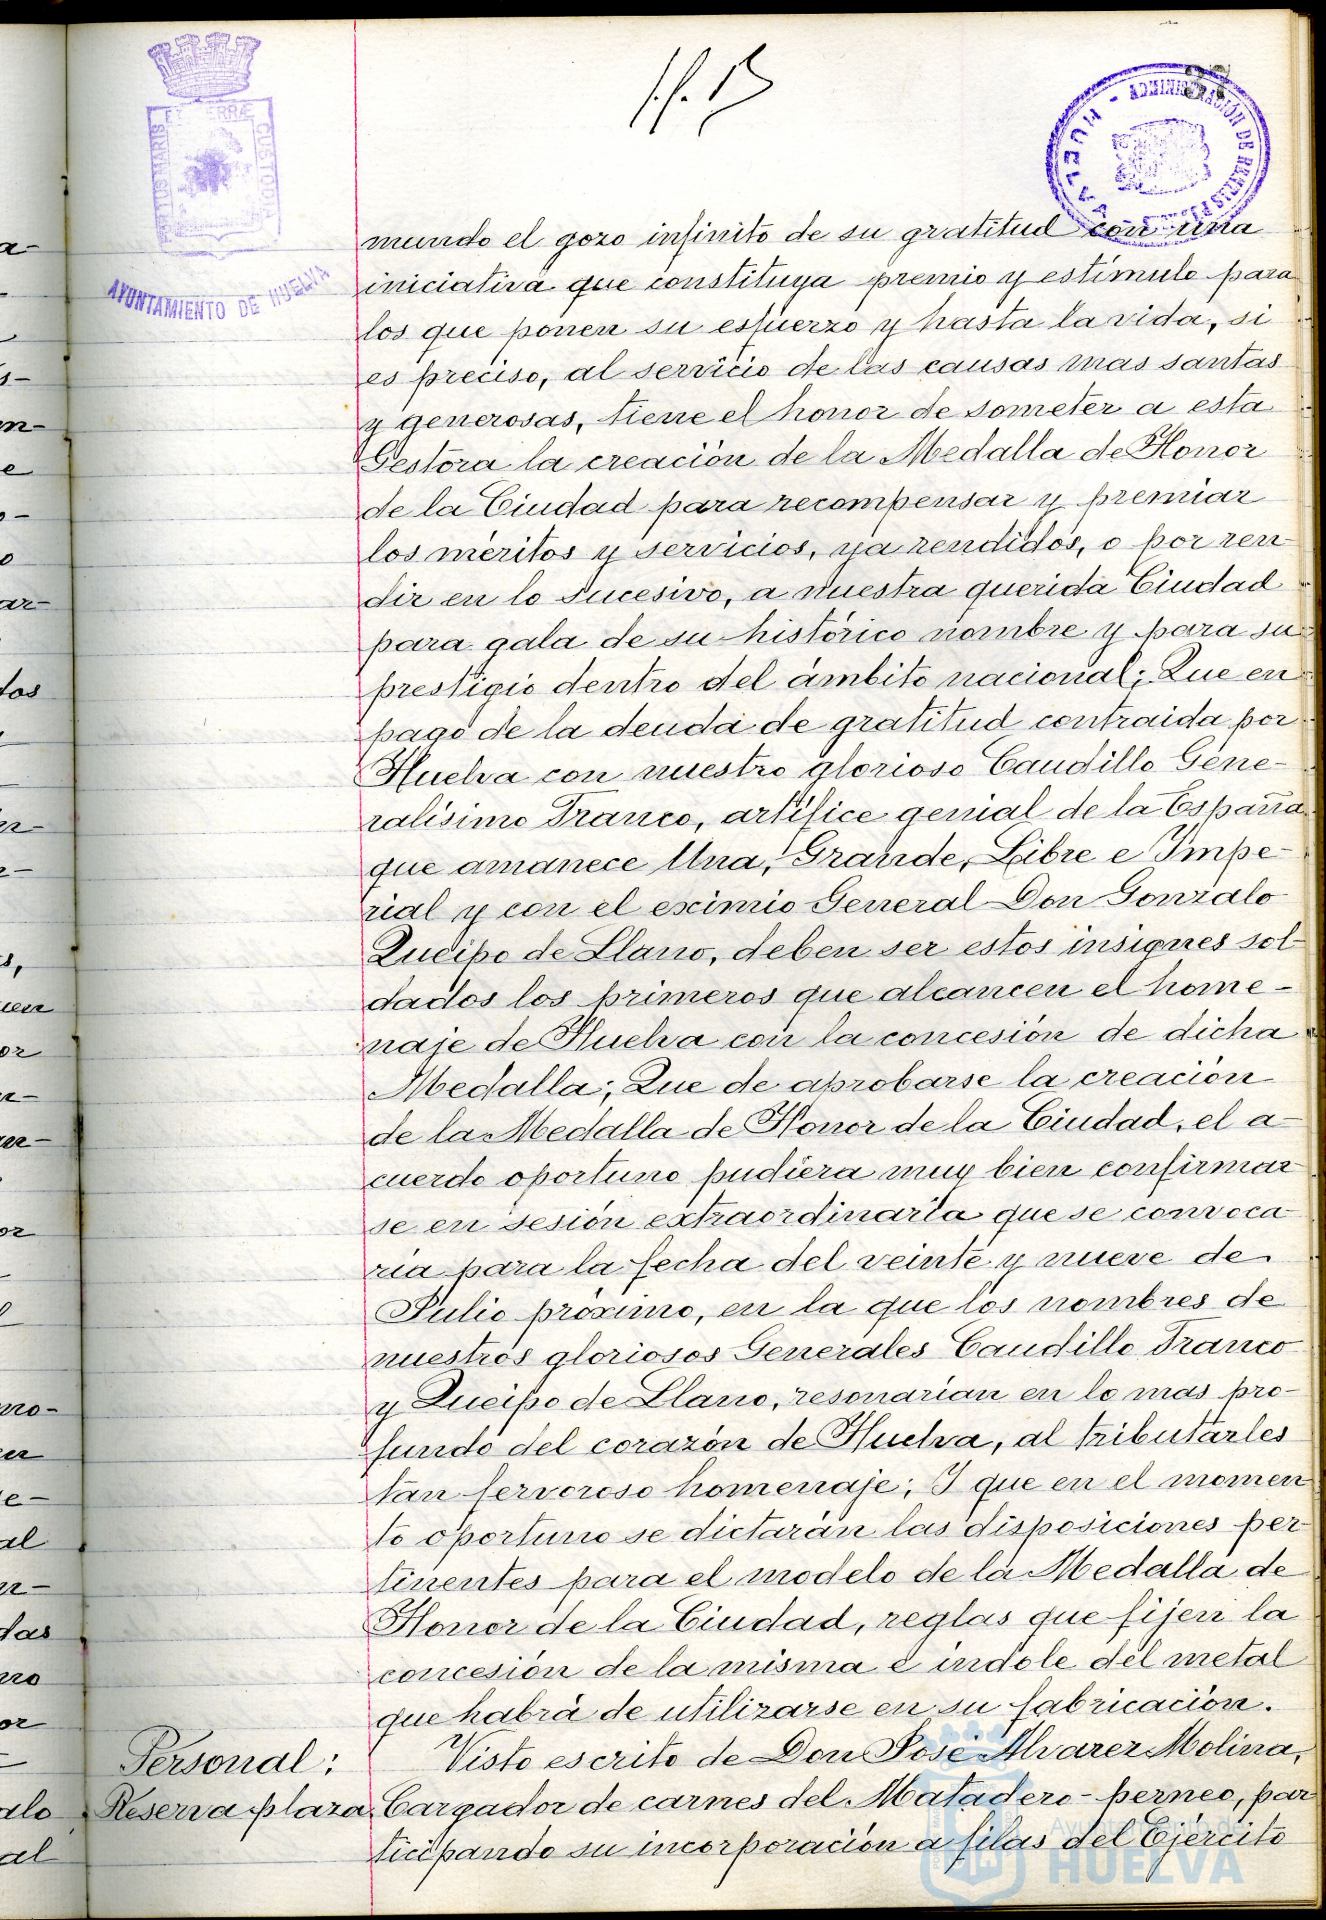 37
ADMINISTRACIÓN DE RENTAS
HUELVA
PORTUS MARIS ET TERRÆ CUSTODIA
AYUNTAMIENTO DE HUELVA
mundo el gozo infinito de su gratitud con una
iniciativa que constituya premio y estímulo para
los que ponen su esfuerzo y hasta la vida, si
es preciso, al servicio de las causas mas santas
y generosas, tiene el honor de someter a esta
Gestora la creación de la Medalla de Honor
de la Ciudad para recompensar y premiar
los méritos y servicios, ya rendidos, o por ren-
dir en lo sucesivo, a nuestra querida Ciudad
para gala de su histórico nombre y para su
prestigio dentro del ámbito nacional; Que en
pago de la deuda de gratitud contraida por
Huelva con nuestro glorioso Caudillo Gene-
ralísimo Franco, artífice genial de la España
que amanece Una, Grande, Libre e Impe-
rial y con el eximio General Don Gonzalo
Queipo de Llano, deben ser estos insignes sol-
dados los primeros que alcancen el home-
naje de Huelva con la concesión de dicha
Medalla; Que de aprobarse la creación
de la Medalla de Honor de la Ciudad, el a-
cuerdo oportuno pudiera muy bien confirmar
se en sesión extraordinaria que se convoca
ría para la fecha del veinte y nueve de
Julio próximo, en la que los nombres de
nuestros gloriosos Generales Caudillo Franco
y Queipo de Llano, resonarían en lo mas pro-
fundo del corazón de Huelva, al tributarles
tan fervoroso homenaje; Y que en el momen
to oportuno se dictarán las disposiciones per-
tinentes para el modelo de la Medalla de
Honor de la Ciudad, reglas que fijen la
concesión de la misma e indole del metal
que habrá de utilizarse en su fabricación.
Personal:
Reserva plaza
Visto escrito de Don José Alvarez Molina,
Cargador de carnes del Matadero-perneo, par
ticipando su incorporación a filas del Ejército
Ayuntamiento de
HUELVA